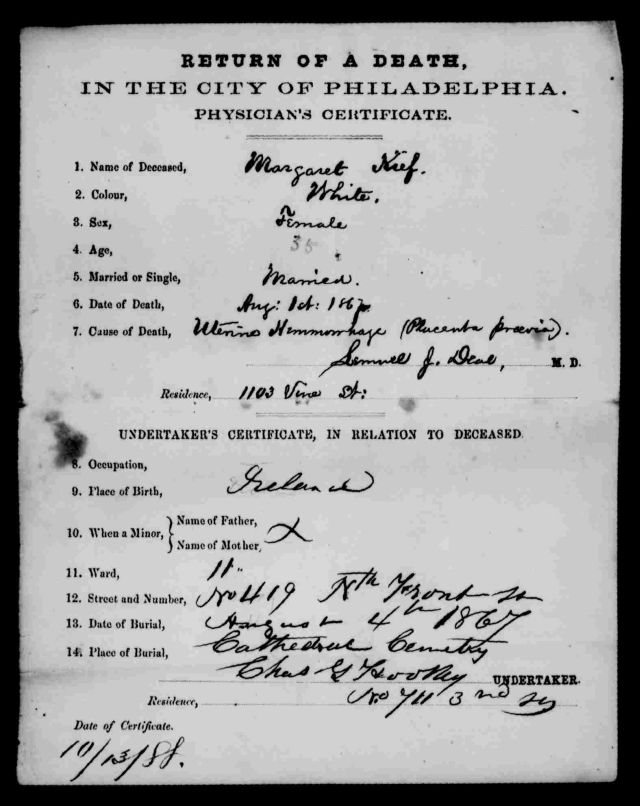 RETURN OF A DEATH,
IN THE CITY OF PHILADELPHIA.
PHYSICIAN'S CERTIFICATE.
1. Name of Deceased, Margaret Kief.
2. Colour, White.
3. Sex, Female
4. Age, 35
5. Married or Single, Married.
6. Date of Death, Aug: 1st: 1867
7. Cause of Death, Uterine Hemmorrhage (Placenta prævia).
Lemuel J. Deal, M. D.
Residence, 1103 Vine St:
UNDERTAKER'S CERTIFICATE, IN RELATION TO DECEASED
8. Occupation,
9. Place of Birth, Ireland
10. When a Minor, Name of Father, X
Name of Mother,
11. Ward, 11"
12. Street and Number, No 419 Nth Front St
13. Date of Burial, August 4th 1867
14. Place of Burial, Cathedral Cemetry
Chas G UNDERTAKER.
Residence, No 711 3rd St
Date of Certificate.
10/13/88.